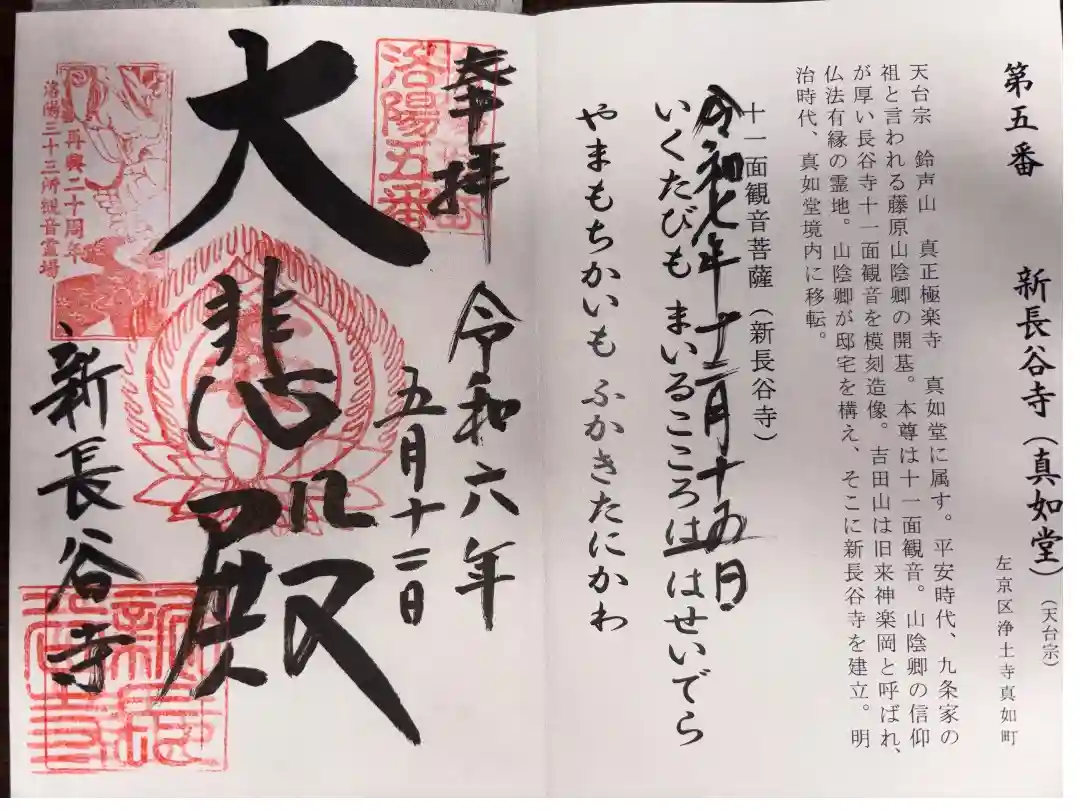 第五番　新長谷寺（真如堂）（天台宗）
左京区浄土寺真如町
天台宗　鈴声山　真正極楽寺　真如堂に属す。平安時代、九条家の
祖と言われる藤原山陰卿の開基。本尊は十一面観音。山陰卿の信仰
が厚い長谷寺十一面観音を模刻造像。吉田山は旧来神楽岡と呼ばれ、
仏法有縁の霊地。山陰卿が邸宅を構え、そこに新長谷寺を建立。明
治時代、真如堂境内に移転。
十一面観音菩薩（新長谷寺）
令和七年十二月十五日
いくたびも まいるこころは はせいでら
やまもちかいも ふかきたにかわ
奉拝
洛陽五番
令和六年
五月十二日
大悲殿
再興二十周年
洛陽三十三所観音霊場
新長谷寺